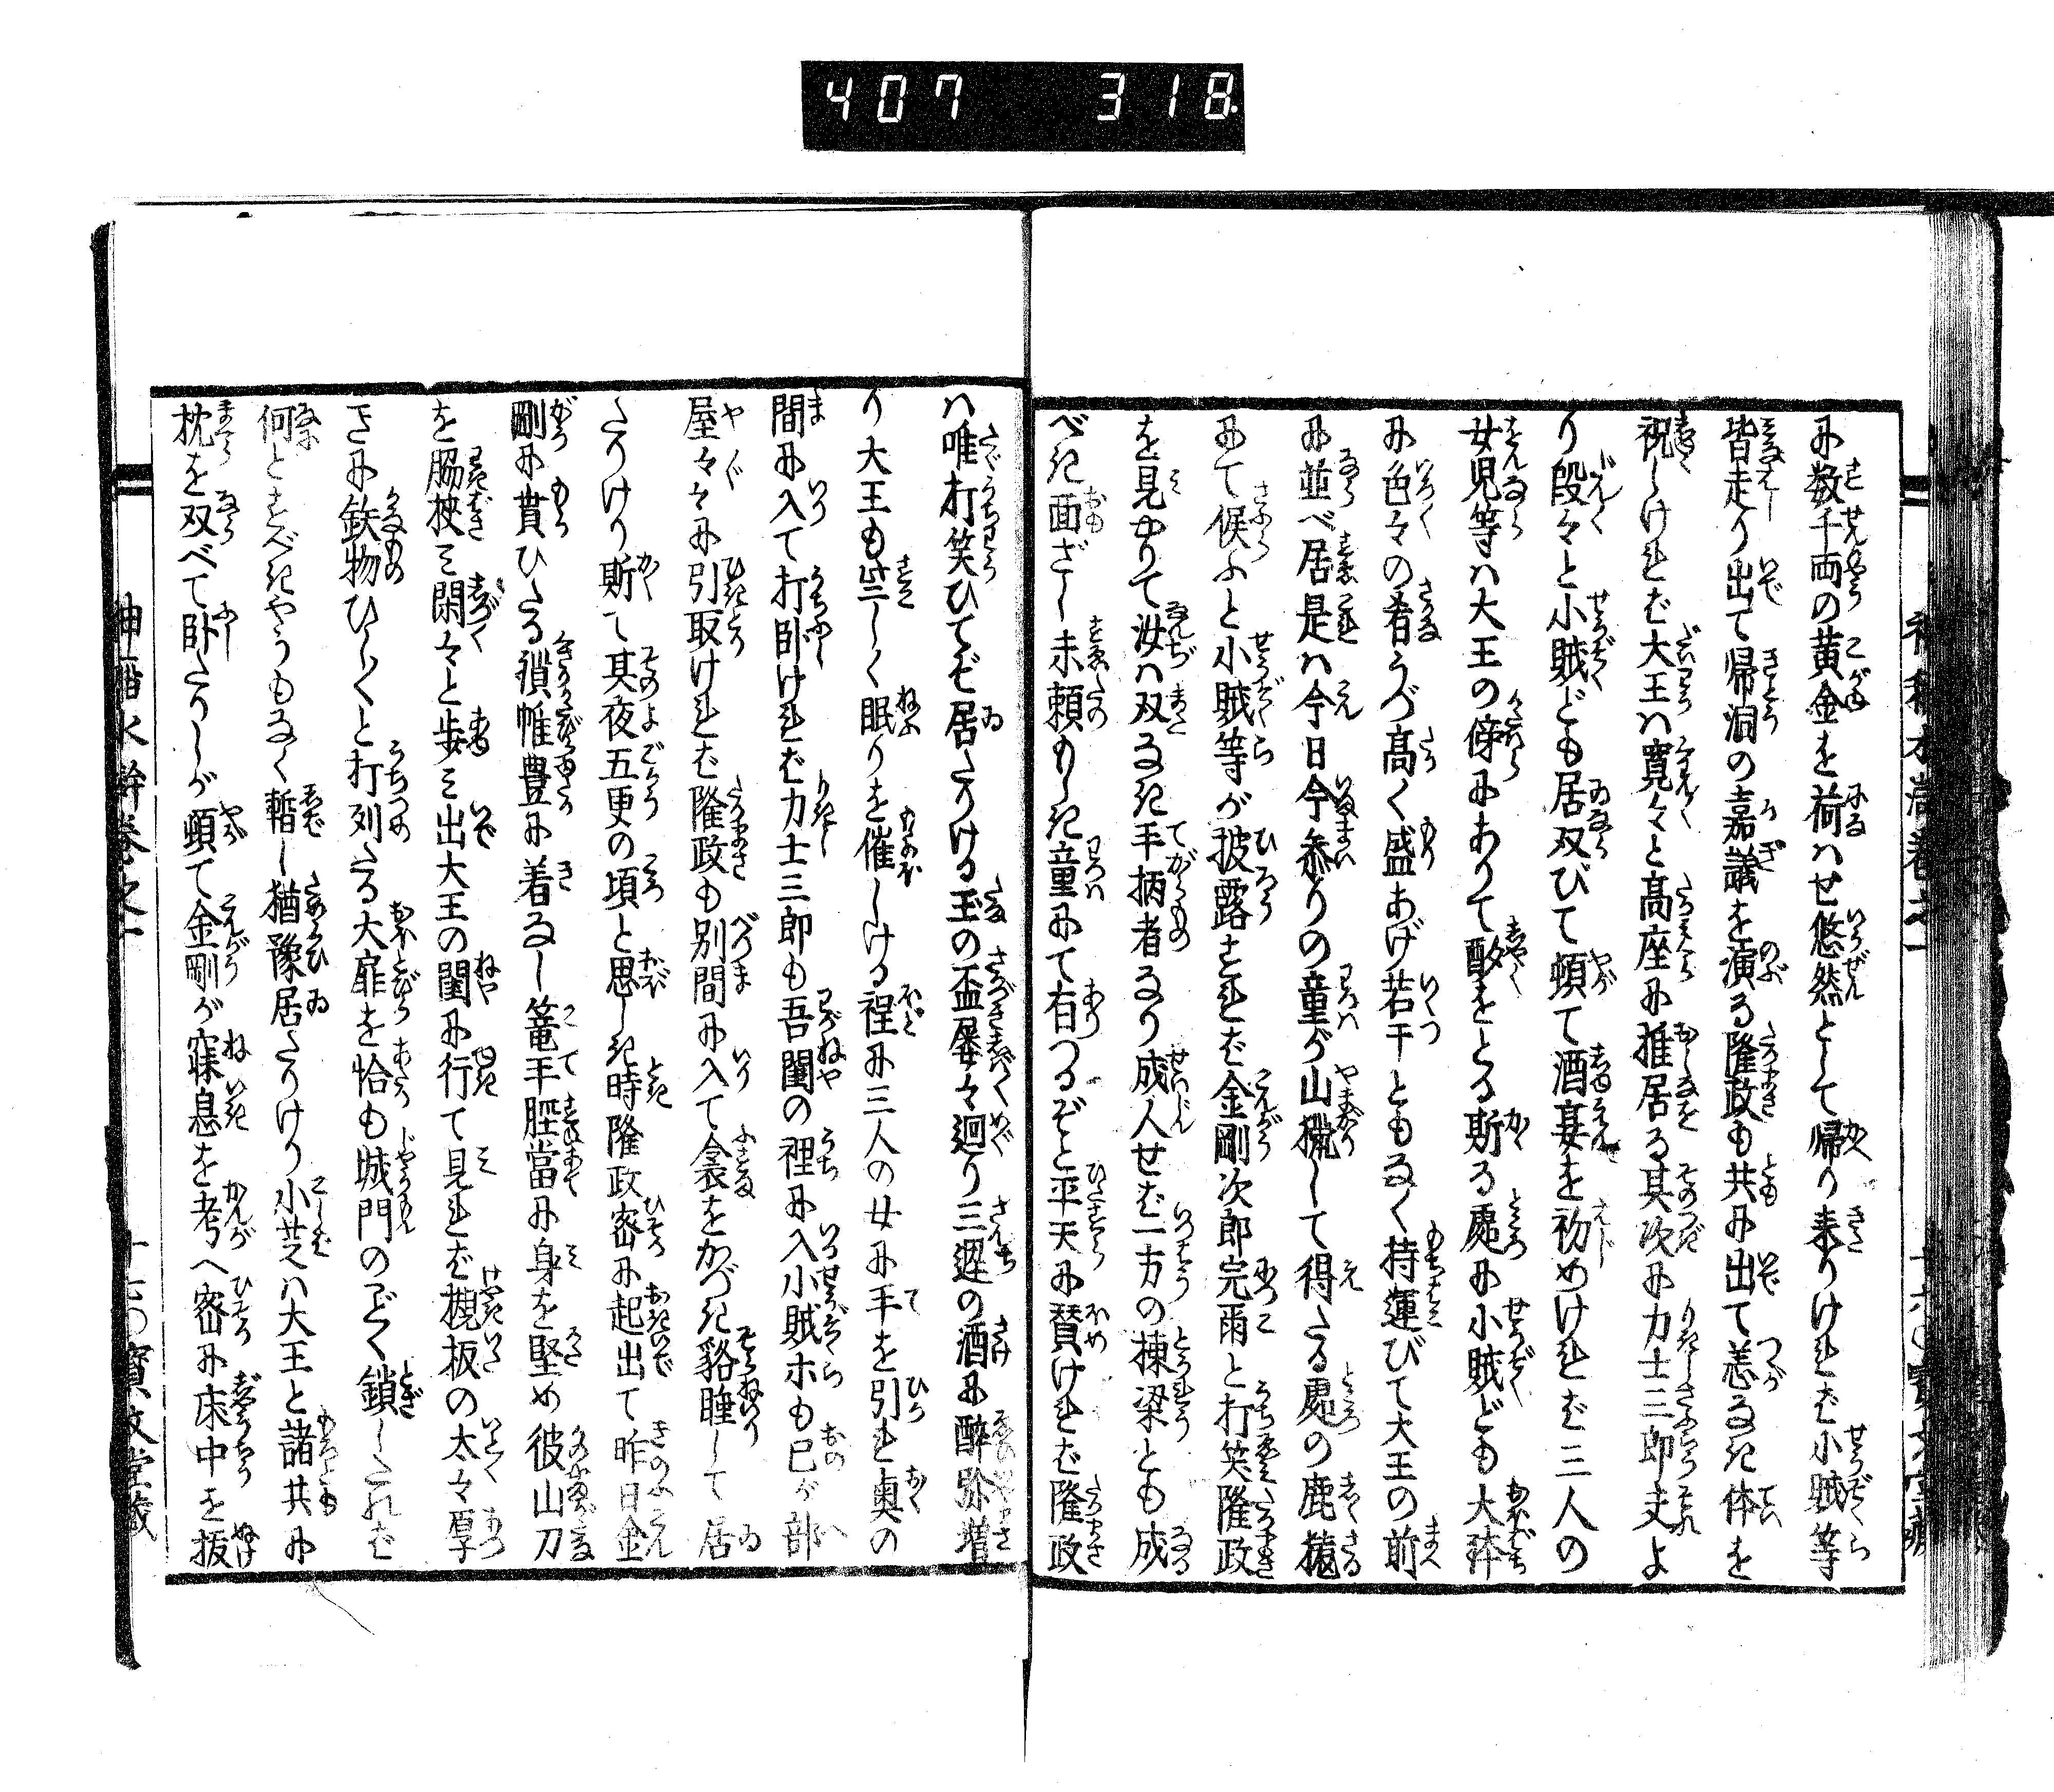 407 318
に数千両の黄金を荷はせ悠然として帰り来りければ小賊等
皆走り出て帰洞の嘉議を演る隆政も共に出て恙なき体を
祝しければ大王ハ寛々と高座に推居る其次に力士三郎夫よ
り段々と小賊ども居双びて頓て酒宴を初めければ三人の
女児等ハ大王の傍にありて酌をとる斯る処に小賊ども大鉢
に色々の肴うづ高く盛あげ若干ともなく持運びて大王の前
に並べ居是ハ今日今参りの童が山猟して得たる処の鹿猿
にて候ふと小賊等が披露すれば金剛次郎完爾と打笑隆政
を見やりて汝ハ双なき手柄者なり成人せば一方の棟梁とも成
べき面ざし末頼もしき童にて有つるぞと平天に賛ければ隆政
ハ唯打笑ひてぞ居たりける玉の盃屡々廻り三遅の酒に酔弥増
り大王も些しく眠りを催しける程に三人の女に手を引れ奥の
間に入て打臥ければ力士三郎も吾閨の裡に入小賊ホも己が部
屋々々に引取ければ隆政も別間に入て衾をかづき貉睡して居
たりけり斯て其夜五更の頃と思しき時隆政密に起出て昨日金
剛に貰ひたる鎖帷豊に着なし篭手脛当に身を堅め彼山刀
を脇挟み閑々と歩み出大王の閨に行て見れば槻板の太々厚
きに鉄物ひし〳〵と打列たる大扉を恰も城門のごく鎖したれば
何とすべきやうもなく暫し猶豫居たりけり小芝ハ大王と諸共に
枕を双べて臥たりしが頓て金剛が寐息を考へ密に床中を抜
寳文堂蔵